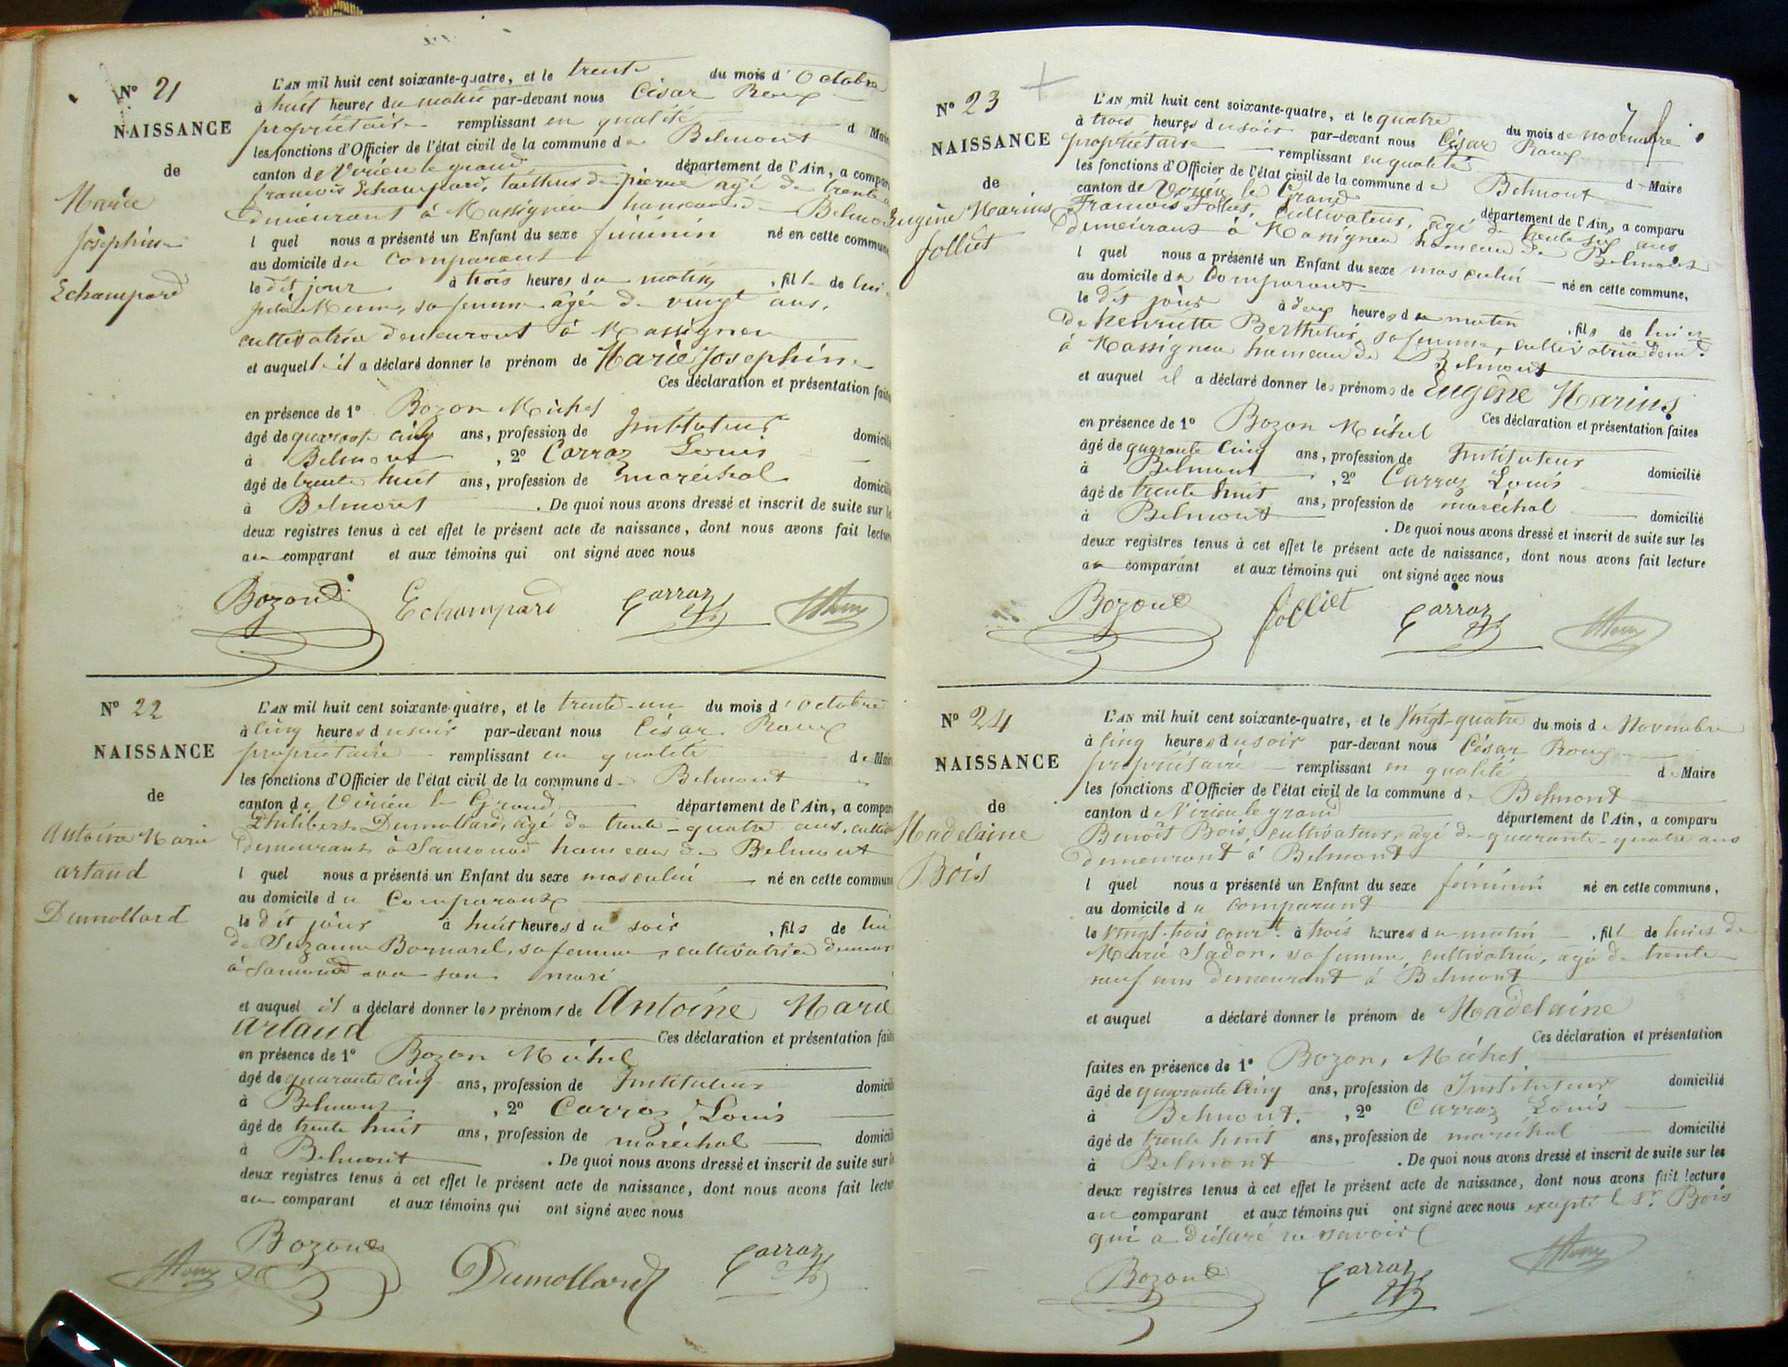 N° 21
NAISSANCE
de
Marie
Joséphine
Echampard
L'AN mil huit cent soixante-quatre, et le trente du mois d'Octobre
à huit heures du matin par-devant nous César Roux
propriétaire remplissant en qualité de Maire
les fonctions d'Officier de l'état civil de la commune de Belmont
canton de Virieu le grand département de l'Ain, a comparu
francois Echampard, tailleur de pierre agé de trente
demeurant à Massignieu hameau de Belmont
l quel nous a présenté un Enfant du sexe féminin né en cette commune
au domicile du comparant
le dit jour à trois heures du matin, fille de lui
sa femme agée de vingt ans,
cultivatrice demeurant à Massignieu
et auquel il a déclaré donner le prénom de Marie Joséphine
Ces déclaration et présentation faites
en présence de 1° Bozon Michel
âgé de quarante cinq ans, profession de Instituteur domicilié
à Belmont, 2° Carraz Louis
âgé de trente huit ans, profession de maréchal domicilié
à Belmont. De quoi nous avons dressé et inscrit de suite sur les
deux registres tenus à cet effet le présent acte de naissance, dont nous avons fait lecture
au comparant et aux témoins qui ont signé avec nous
Bozon Echampard Carraz
N° 22
NAISSANCE
de
Antoine Marie
artaud
Dumollard
L'AN mil huit cent soixante-quatre, et le trente-un du mois d'octobre
à cinq heures du soir par-devant nous César Roux
propriétaire remplissant en qualité de Maire
les fonctions d'Officier de l'état civil de la commune de Belmont
canton de Virieu le Grand département de l'Ain, a comparu
Philibert Dumollard, agé de trente-quatre ans, cultiv
demeurant à Sansonod hameau de Belmont
l quel nous a présenté un Enfant du sexe masculin né en cette commune
au domicile du Comparant
le dit jour à huit heures du soir, fils de lui
de Suzanne Bornarel, sa femme, cultivatrice demeur
à Samonod avec son mari
et auquel il a déclaré donner les prénoms de Antoine Marie
artaud Ces déclaration et présentation faites
en présence de 1° Bozon Michel
âgé de quarante cinq ans, profession de Instituteur domicilié
à Belmont, 2° Carraz Louis
âgé de trente huit ans, profession de maréchal domicilié
à Belmont. De quoi nous avons dressé et inscrit de suite sur les
deux registres tenus à cet effet le présent acte de naissance, dont nous avons fait lecture
au comparant et aux témoins qui ont signé avec nous
Bozon Dumollard Carraz
N° 23
NAISSANCE
de
Eugène Marius
folliet
L'AN mil huit cent soixante-quatre, et le quatre du mois de novembre
à trois heures du soir par-devant nous César Roux
propriétaire remplissant en qualité de Maire
les fonctions d'Officier de l'état civil de la commune de Belmont
canton de Virieu le Grand département de l'Ain, a comparu
Francois Folliet, cultivateur, agé de trente six ans
demeurant à Massignieu hameau de Belmont
l quel nous a présenté un Enfant du sexe masculin né en cette commune,
au domicile du Comparant
le dit jour à deux heures du matin, fils de lui et
de henriette Berthelier, sa femme, cultivatrice demt
à Massignieu hameau de Belmont
et auquel il a déclaré donner les prénoms de Eugène Marius
Ces déclaration et présentation faites
en présence de 1° Bozon Michel
âgé de quarante cinq ans, profession de Instituteur domicilié
à Belmont, 2° Carraz Louis
âgé de trente huit ans, profession de maréchal domicilié
à Belmont. De quoi nous avons dressé et inscrit de suite sur les
deux registres tenus à cet effet le présent acte de naissance, dont nous avons fait lecture
au comparant et aux témoins qui ont signé avec nous
Bozon folliet Carraz
N° 24
NAISSANCE
de
Madelaine
Bois
L'AN mil huit cent soixante-quatre, et le Vingt-quatre du mois de Novembre
à cinq heures du soir par-devant nous César Roux
propriétaire remplissant en qualité de Maire
les fonctions d'Officier de l'état civil de la commune de Belmont
canton de Virieu le grand département de l'Ain, a comparu
Benoît Bois, cultivateur, agé de quarante-quatre ans
demeurant à Belmont
l quel nous a présenté un Enfant du sexe féminin né en cette commune,
au domicile du comparant
le Vingt-trois court à trois heures du matin, fille de lui et de
Marie Jadon, sa femme, cultivatrice, agée de trente
neuf ans demeurant à Belmont
et auquel a déclaré donner le prénom de Madelaine
Ces déclaration et présentation
faites en présence de 1° Bozon, Michel
âgé de quarante cinq ans, profession de Instituteur domicilié
à Belmont, 2° Carraz Louis
âgé de trente huit ans, profession de maréchal domicilié
à Belmont. De quoi nous avons dressé et inscrit de suite sur les
deux registres tenus à cet effet le présent acte de naissance, dont nous avons fait lecture
au comparant et aux témoins qui ont signé avec nous excepté le Sr. Bois
qui a déclaré ne savoir
Bozon Carraz